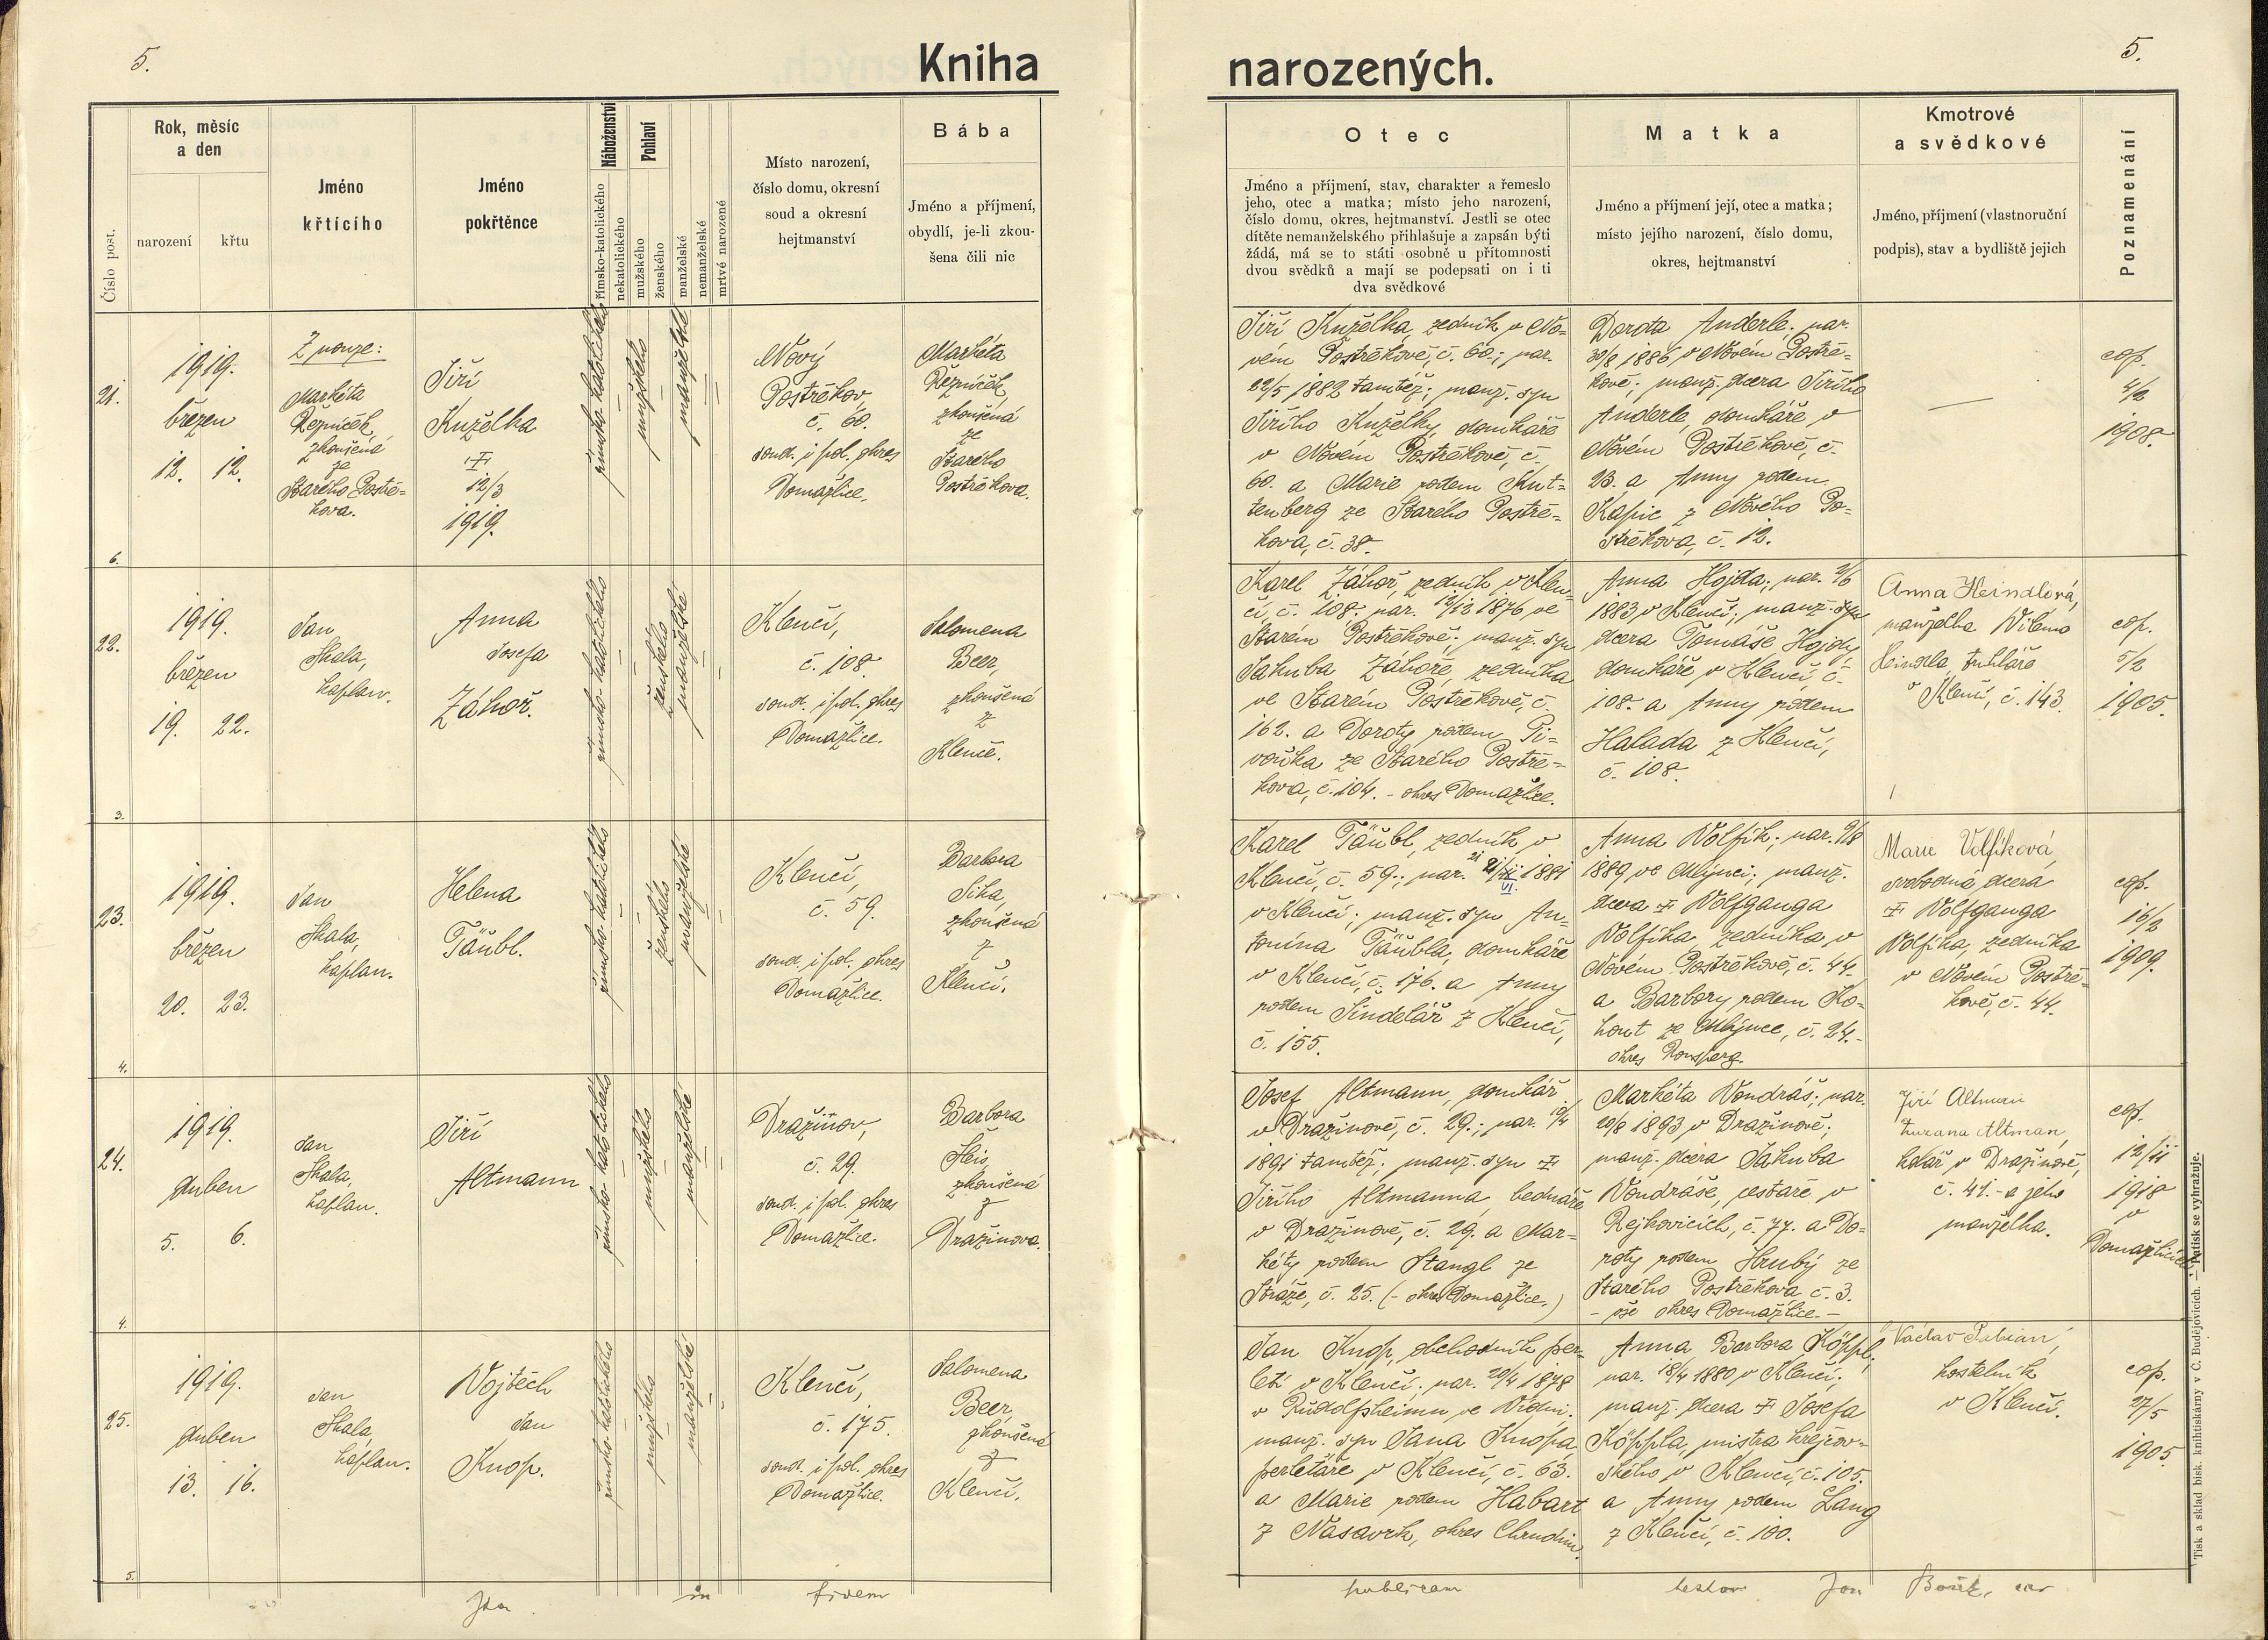 5.
Kniha
narozených.
5.
Číslo post.
Rok, měsíc
a den
narození
křtu
Jméno
křtícího
Jméno
pokřtěnce
Náboženství
římsko-katolického
nekatolického
Pohlaví
mužského
ženského
manželské
nemanželské
mrtvé narozené
Místo narození,
číslo domu, okresní
soud a okresní
hejtmanství
Bába
Jméno a příjmení,
obydlí, je-li zkou-
šena čili nic
Otec
Jméno a příjmení, stav, charakter a řemeslo
jeho, otec a matka; místo jeho narození,
číslo domu, okres, hejtmanství. Jestli se otec
dítěte nemanželského přihlašuje a zapsán býti
žádá, má se to státi osobně u přítomnosti
dvou svědků a mají se podepsati on i ti
dva svědkové
Matka
Jméno a příjmení její, otec a matka;
místo jejího narození, číslo domu,
okres, hejtmanství
Kmotrové
a svědkové
Jméno, příjmení (vlastnoruční
podpis), stav a bydliště jejich
Poznamenání
21.
1919.
březen
12. 12.
6.
Z nouze:
Markéta
Řezníček,
zkoušená
ze
Starého Postře-
kova.
Jiří
Kuželka
12/3
1919.
římsko-katolického
mužského
manželské
Nový
Postřekov,
č. 60.
soud. i pol. okres
Domažlice.
Markéta
Řezníček,
zkoušená
ze
Starého
Postřekova.
Jiří Kuželka, zedník v No-
vém Postřekově, č. 60.; nar.
22/5 1882 tamtéž; manž. syn
Jiřího Kuželky, domkáře
v Novém Postřekově, č.
60. a Marie rodem Kut-
tenberg ze Starého Postře-
kova, č. 38.
Dorota Anderle; nar.
30/8 1886 v Novém Postře-
kově; manž. dcera Jiřího
Anderle, domkáře v
Novém Postřekově, č.
23. a Anny rodem
Kapic z Nového Po-
střekova, č. 12.
—
cop.
4/2
1908.
22.
1919.
březen
19. 22.
3.
Jan
Skala,
kaplan.
Anna
Josefa
Záhoř.
římsko-katolického
ženského
manželské
Klenčí,
č. 108.
soud. i pol. okres
Domažlice.
Salomena
Beer,
zkoušená
z
Klenče.
Karel Záhoř, zedník v Klen-
čí, č. 108. nar. 12/12 1876 ve
Starém Postřekově; manž. syn
Jakuba Záhoře, zedníka
ve Starém Postřekově, č.
162. a Doroty rodem Pi-
voňka ze Starého Postře-
kova, č. 104. - okres Domažlice.
Anna Hojda; nar. 2/6
1883 v Klenčí; manž. syn
dcera Tomáše Hojdy
domkáře v Klenčí č.
108. a Anny rodem
Halada z Klenčí,
č. 108.
Anna Heindlová,
manželka Viléma
Heindla, truhláře
v Klenčí, č. 143.
cop.
5/2
1905.
23.
1919.
březen
20. 23.
4.
Jan
Skala,
kaplan.
Helena
Täubl.
římsko-katolického
ženského
manželské
Klenčí,
č. 59.
soud. i pol. okres
Domažlice.
Barbora
Sika,
zkoušená
z
Klenčí.
Karel Täubl, zedník v
Klenčí, č. 59.; nar. 21/VI. 1881
v Klenčí; manž. syn An-
tonína Täubla, domkáře
v Klenčí, č. 176. a Anny
rodem Šindelář z Klenčí,
č. 155.
Anna Volfík; nar. 9/8
1889 ve Mlýnci; manž.
dcera Wolfganga
Volfíka, zedníka v
Novém Postřekově, č. 44.
a Barbory rodem Ko-
hout ze Mlýnce, č. 24.-
okres Ronsperg.
Marie Volfíková,
svobodná dcera
Wolfganga
Volfíka, zedníka
v Novém Postře-
kově, č. 44.
cop.
16/2
1909.
24.
1919.
duben
5. 6.
4.
Jan
Skala,
kaplan.
Jiří
Altmann
římsko-katolického
mužského
manželské
Dražinov,
č. 29.
soud. i pol. okres
Domažlice.
Barbora
Heis,
zkoušená
z
Dražinova.
Josef Altmann, domkář
v Dražinově, č. 29.; nar. 10/4
1891 tamtéž; manž. syn
Jiřího Altmanna, bednáře
v Dražinově, č. 29. a Mar-
kéty rodem Stangl ze
Stráže, č. 25. (- okres Domažlice.)
Markéta Vondráš; nar.
20/8 1893 v Dražinově;
manž. dcera Jakuba
Vondráše, cestáře v
Rejkovicích, č. 77. a Do-
roty rodem Hrubý ze
Starého Postřekova č. 3.
- vše okres Domažlice. -
Jiří Altman
Zuzana Altman,
kolář v Dražinově,
č. 41. - a jeho
manželka.
cop.
12/11
1918
v
Domažlicích
25.
1919.
duben
13. 16.
5.
Jan
Skala,
kaplan.
Vojtěch
Jan
Knop.
římsko-katolického
mužského
manželské
Klenčí,
č. 175.
soud. i pol. okres
Domažlice.
Salomena
Beer,
zkoušená
z
Klenčí.
Jan Knop, obchodník per-
letí v Klenčí; nar. 20/4 1878
v Rudolfsheimu ve Vídni;
manž. syn Jana Knopa,
perletáře v Klenčí, č. 63.
a Marie rodem Habart
z Nasavrk, okres Chrudim.
Anna Barbora Köppl;
nar. 18/4 1880 v Klenčí;
manž. dcera Josefa
Köppla, mistra krejčov-
ského v Klenčí, č. 105.
a Anny rodem Lang
z Klenčí, č. 100.
Václav Pabian,
kostelník
v Klenčí.
cop.
27/5
1905
in fidem publicam testor Jan
Tisk a sklad bisk. knihtiskárny v Č. Budějovicích. — Patisk se vyhražuje.